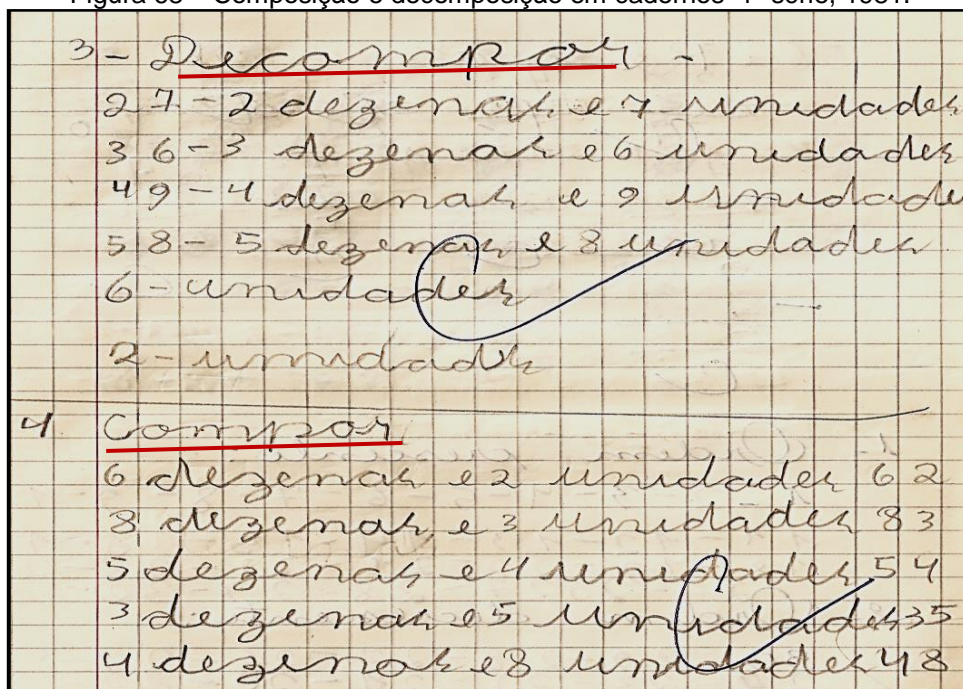 3 - Decompor -
27 - 2 dezenas e 7 unidades
36 - 3 dezenas e 6 unidades
49 - 4 dezenas e 9 unidade
58 - 5 dezenas e 8 unidades
6 - unidades
2 - unidads
4 Compor
6 dezenas e 2 unidades 62
8 dezenas e 3 unidades 83
5 dezenas e 4 unidades 54
3 dezenas e 5 unidades 35
4 dezenas e 8 unidades 48